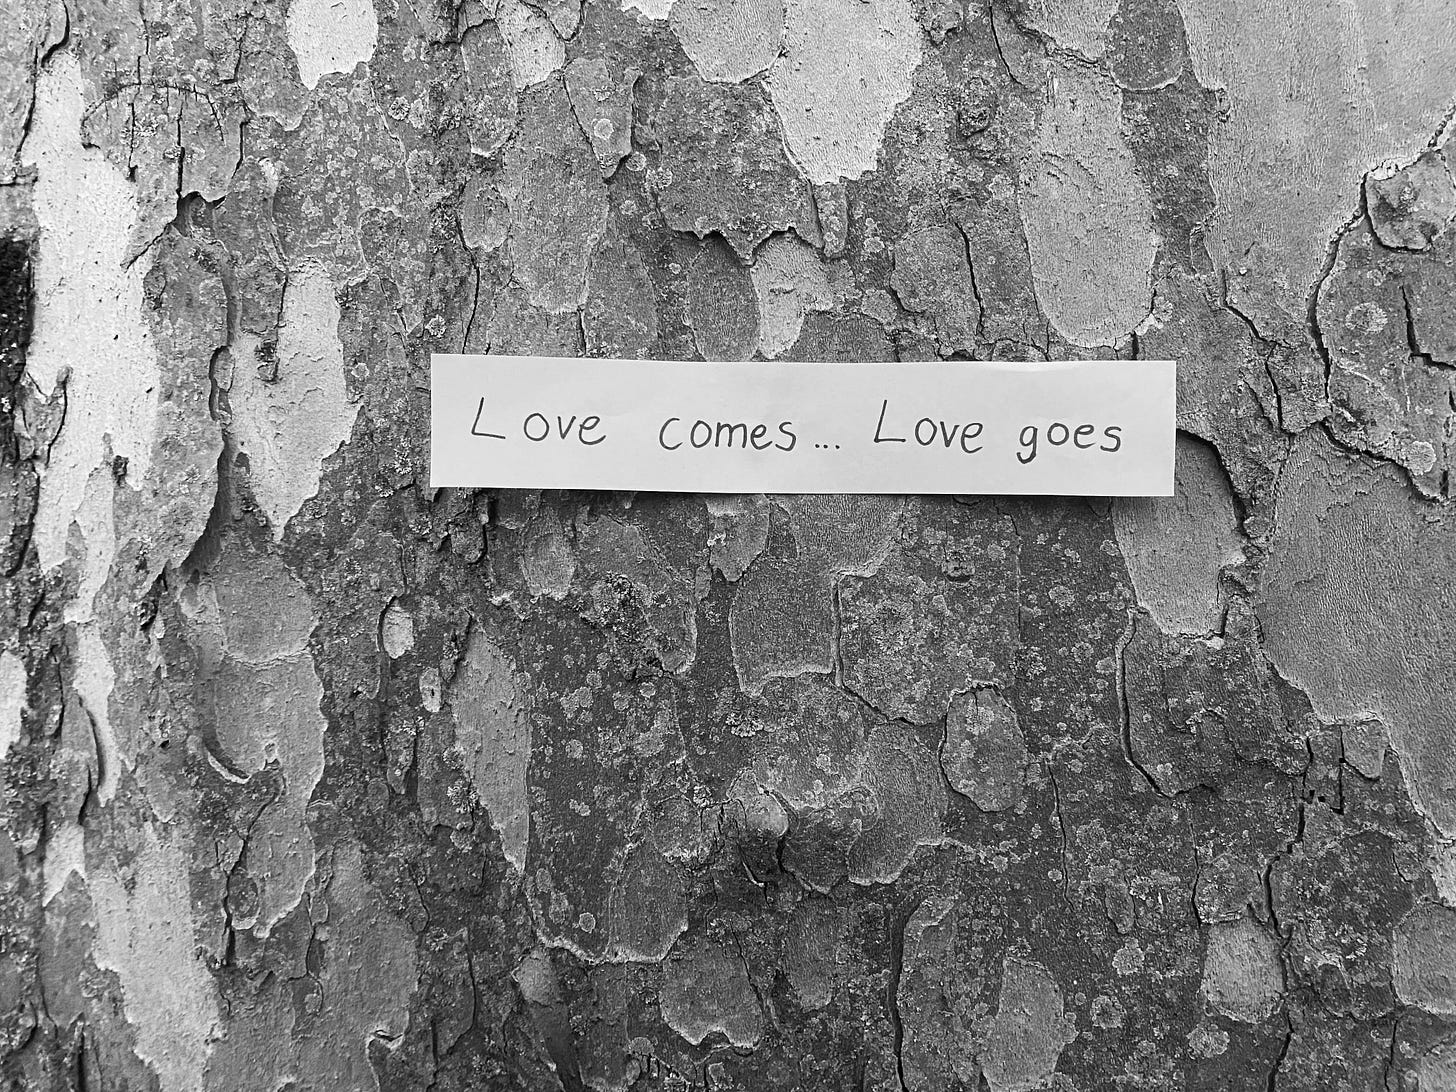 Love comes... Love goes